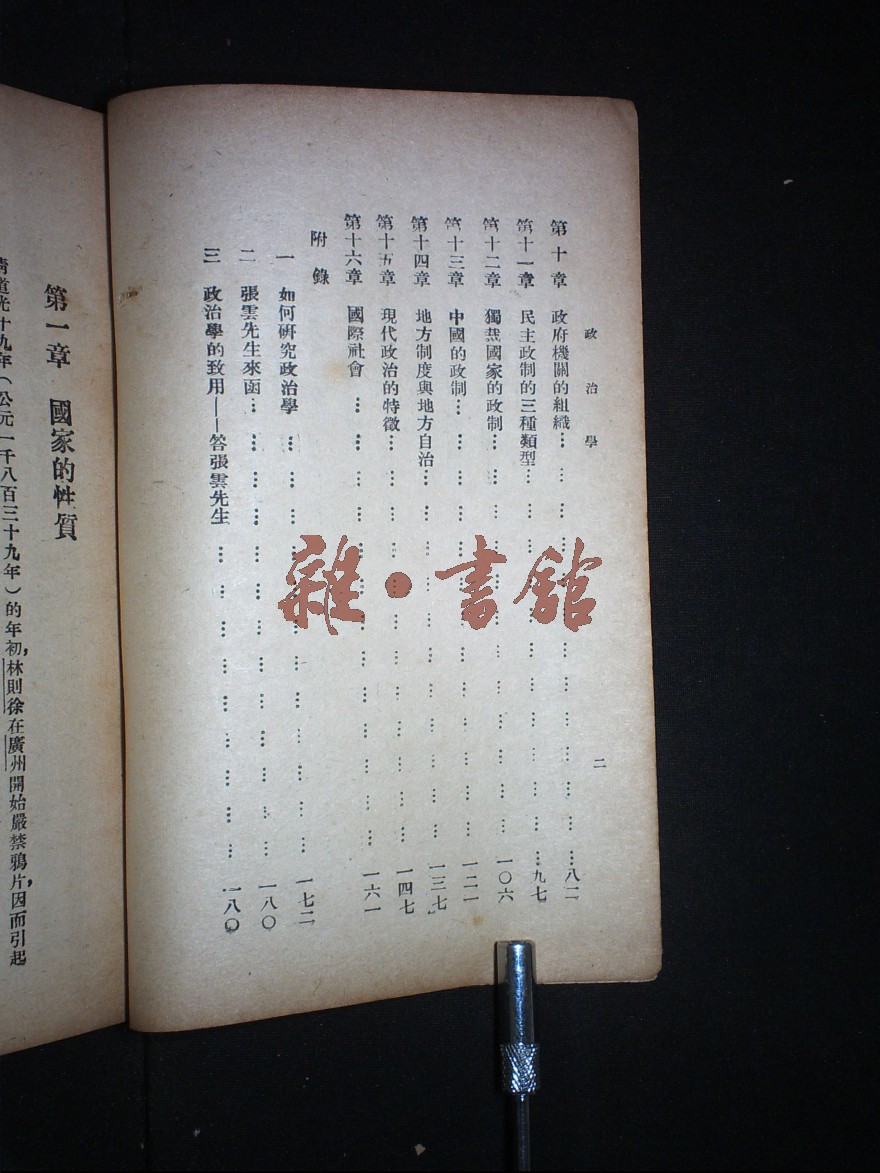 政治學 二
第十章 政府機關的組織…………………………八二
第十一章 民主政制的三種類型…………………………九七
第十二章 獨裁國家的政制…………………………一〇六
第十三章 中國的政制…………………………一二一
第十四章 地方制度與地方自治…………………………一三七
第十五章 現代政治的特徵…………………………一四七
第十六章 國際社會…………………………一六一
附錄
一 如何研究政治學…………………………一七二
二 張雲先生來函…………………………一八〇
三 政治學的致用——答張雲先生…………………………一八〇
第一章 國家的性質
清道光十九年（公元一千八百三十九年）的年初，林則徐在廣州開始嚴禁鴉片，因而引起
雜·書館